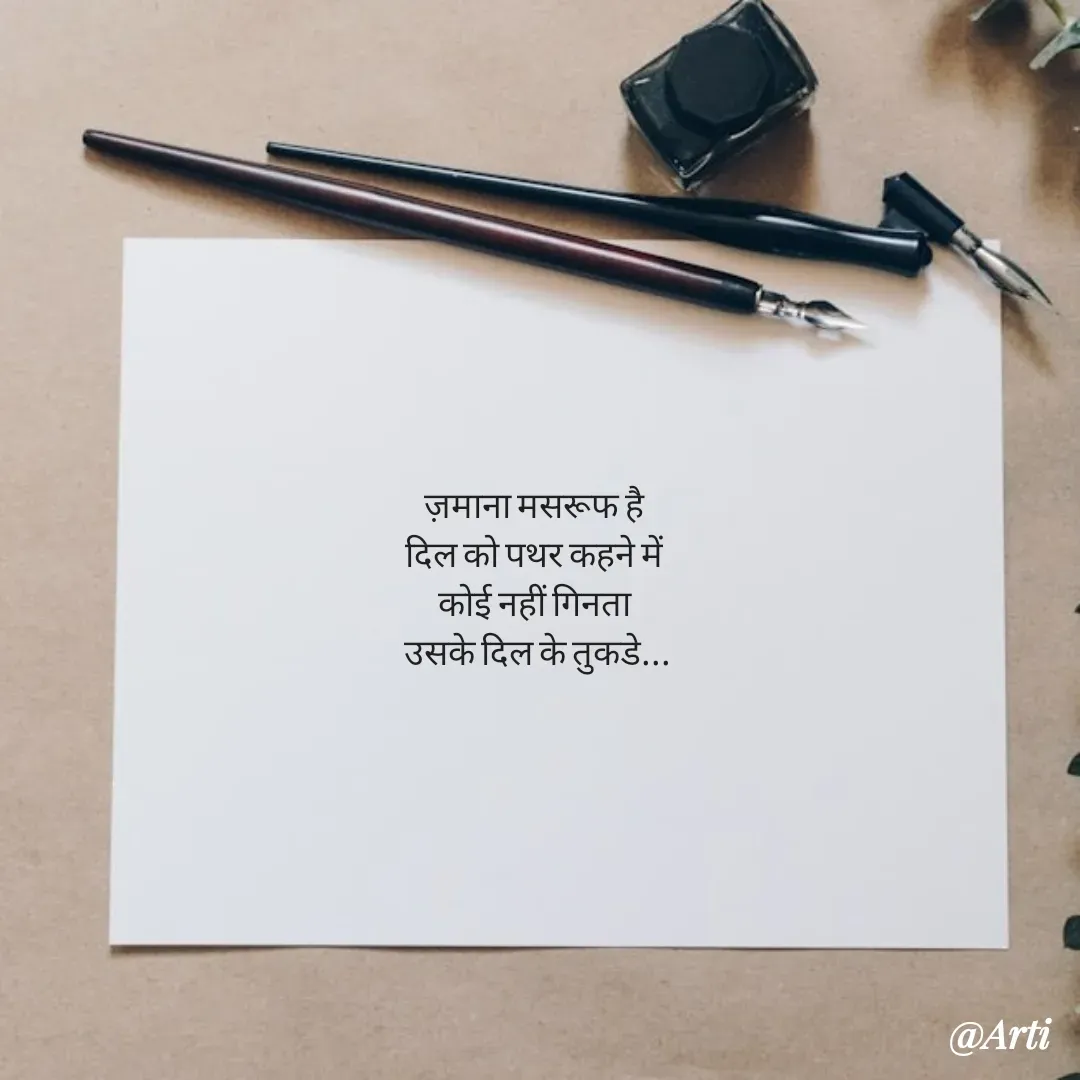 ज़माना मसरूफ है
दिल को पथर कहने में
कोई नहीं गिनता
उसके दिल के तुकडे...
@Arti